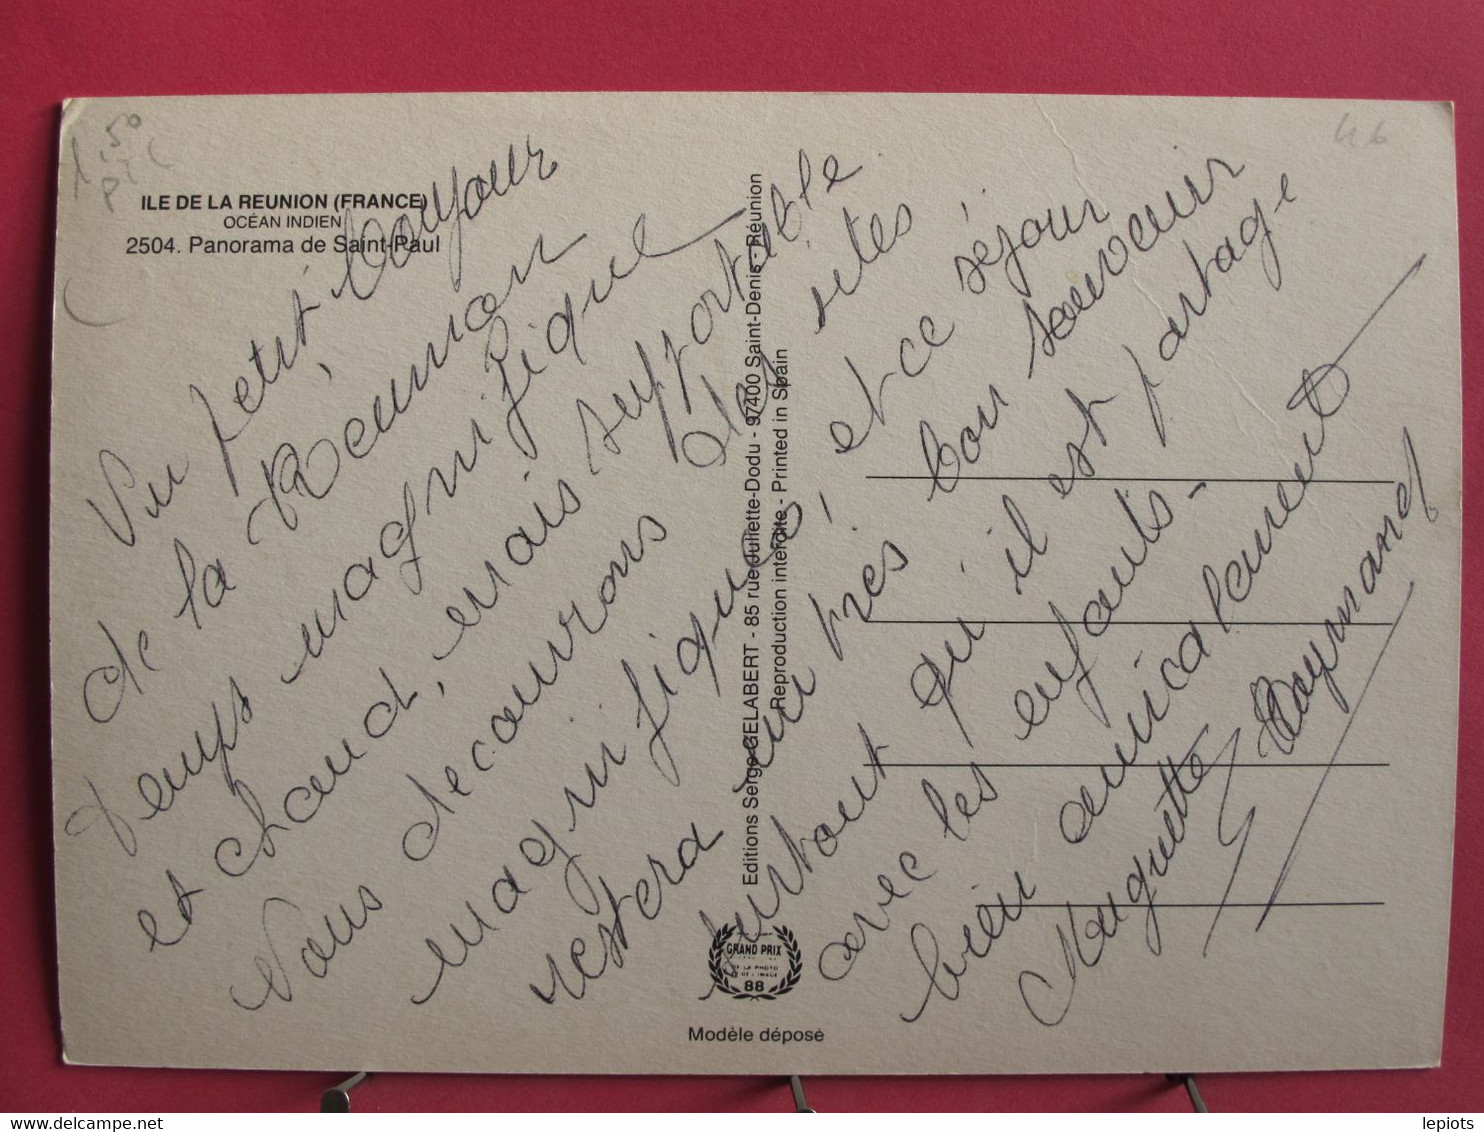 1,50
46
ILE DE LA REUNION (FRANCE)
OCÉAN INDIEN
2504. Panorama de Saint-Paul
Un petit bonjour
de la Réunion
temps magnifique
et chaud, mais supportable
Nous decouvrons des sites
magnifiques, et ce séjour
restera un très bon souvenir
surtout qu'il est partagé
avec les enfants -
bien amicalement
Huguette Raymond
Editions Serge GELABERT - 85 rue Juliette-Dodu - 97400 Saint-Denis - Réunion
Reproduction interdite - Printed in Spain
GRAND PRIX
DE LA PHOTO
DE L'IMAGE
88
Modèle déposé
delcampe.net
lepiots